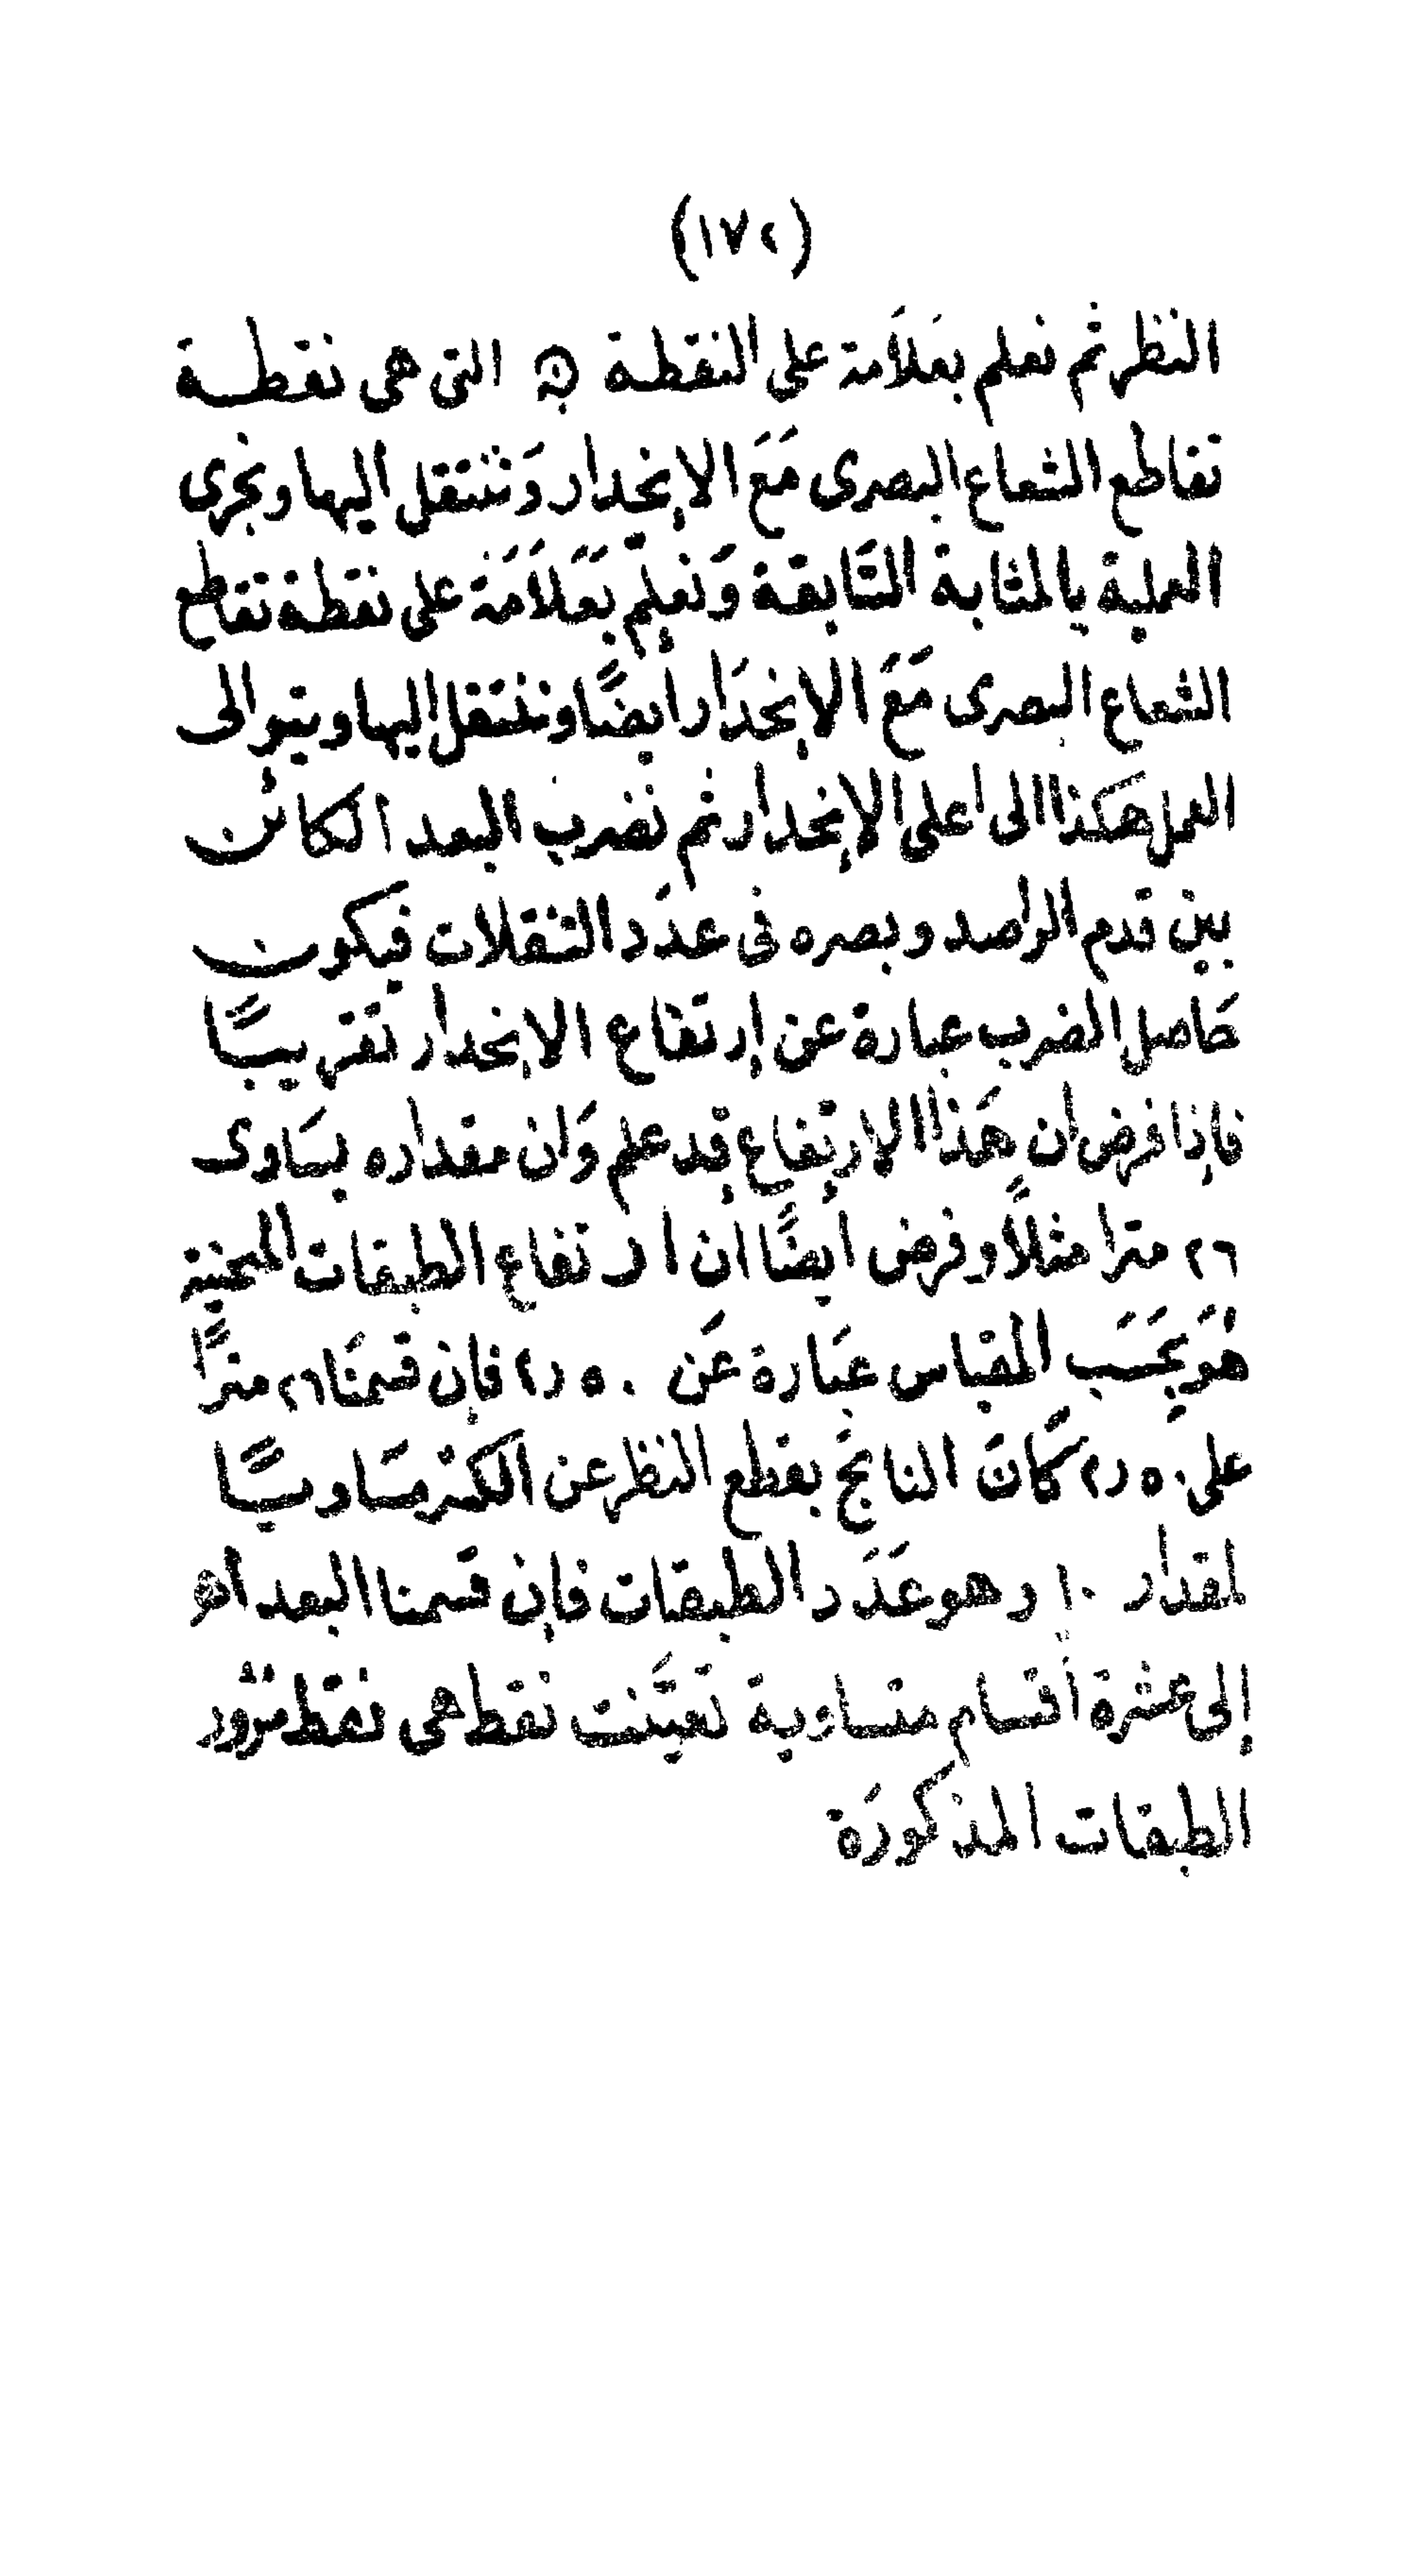 (١٧٢)
النظر ثم نعلم بعَلاَمة على النقطة التى هى نقطة
تقاطع الشعاع البصرى مَعَ الإنحدار وَننتقل اليها ونجرى
العملية بالمثابة السَّابقة وَنعلّم بعَلاَمَة على نقطة تقاطع
الشعاع البصرى مَعَ الإنحدَار ايضًا وننتقل اليها ويتوالى
العمل هكذا الى اعلى الإنحدار ثم نضرب البعد الكائن
بين قدم الراصد وبصره فى عدَد التنقلات فيكون
حَاصل الضرب عبارة عن إرتفاع الإنحدار تقريبًا
فإذا فرض ان هَذا الإرتفاع قد علم وَان مقداره يسَاوى
٢٦ مترا مثلاً وفرض ايضًا ان ارتفاع الطبقات المنحنية
هُوَ بحَسَب المقياس عبَارة عَن ٥٠ر٢ فإن قسمنَا ٢٦ مترًا
على ٥٠ر٢ كَانَ الناتج بقطع النظر عن الكسْر مسَاويًا
لمقدار ١٠ وهو عَدَد الطبقات فإن قسمنا البعد اهـ
إلى عشرة أقسام متساوية تعيَّنت نقط هى نقط مرور
الطبقات المذكورَة